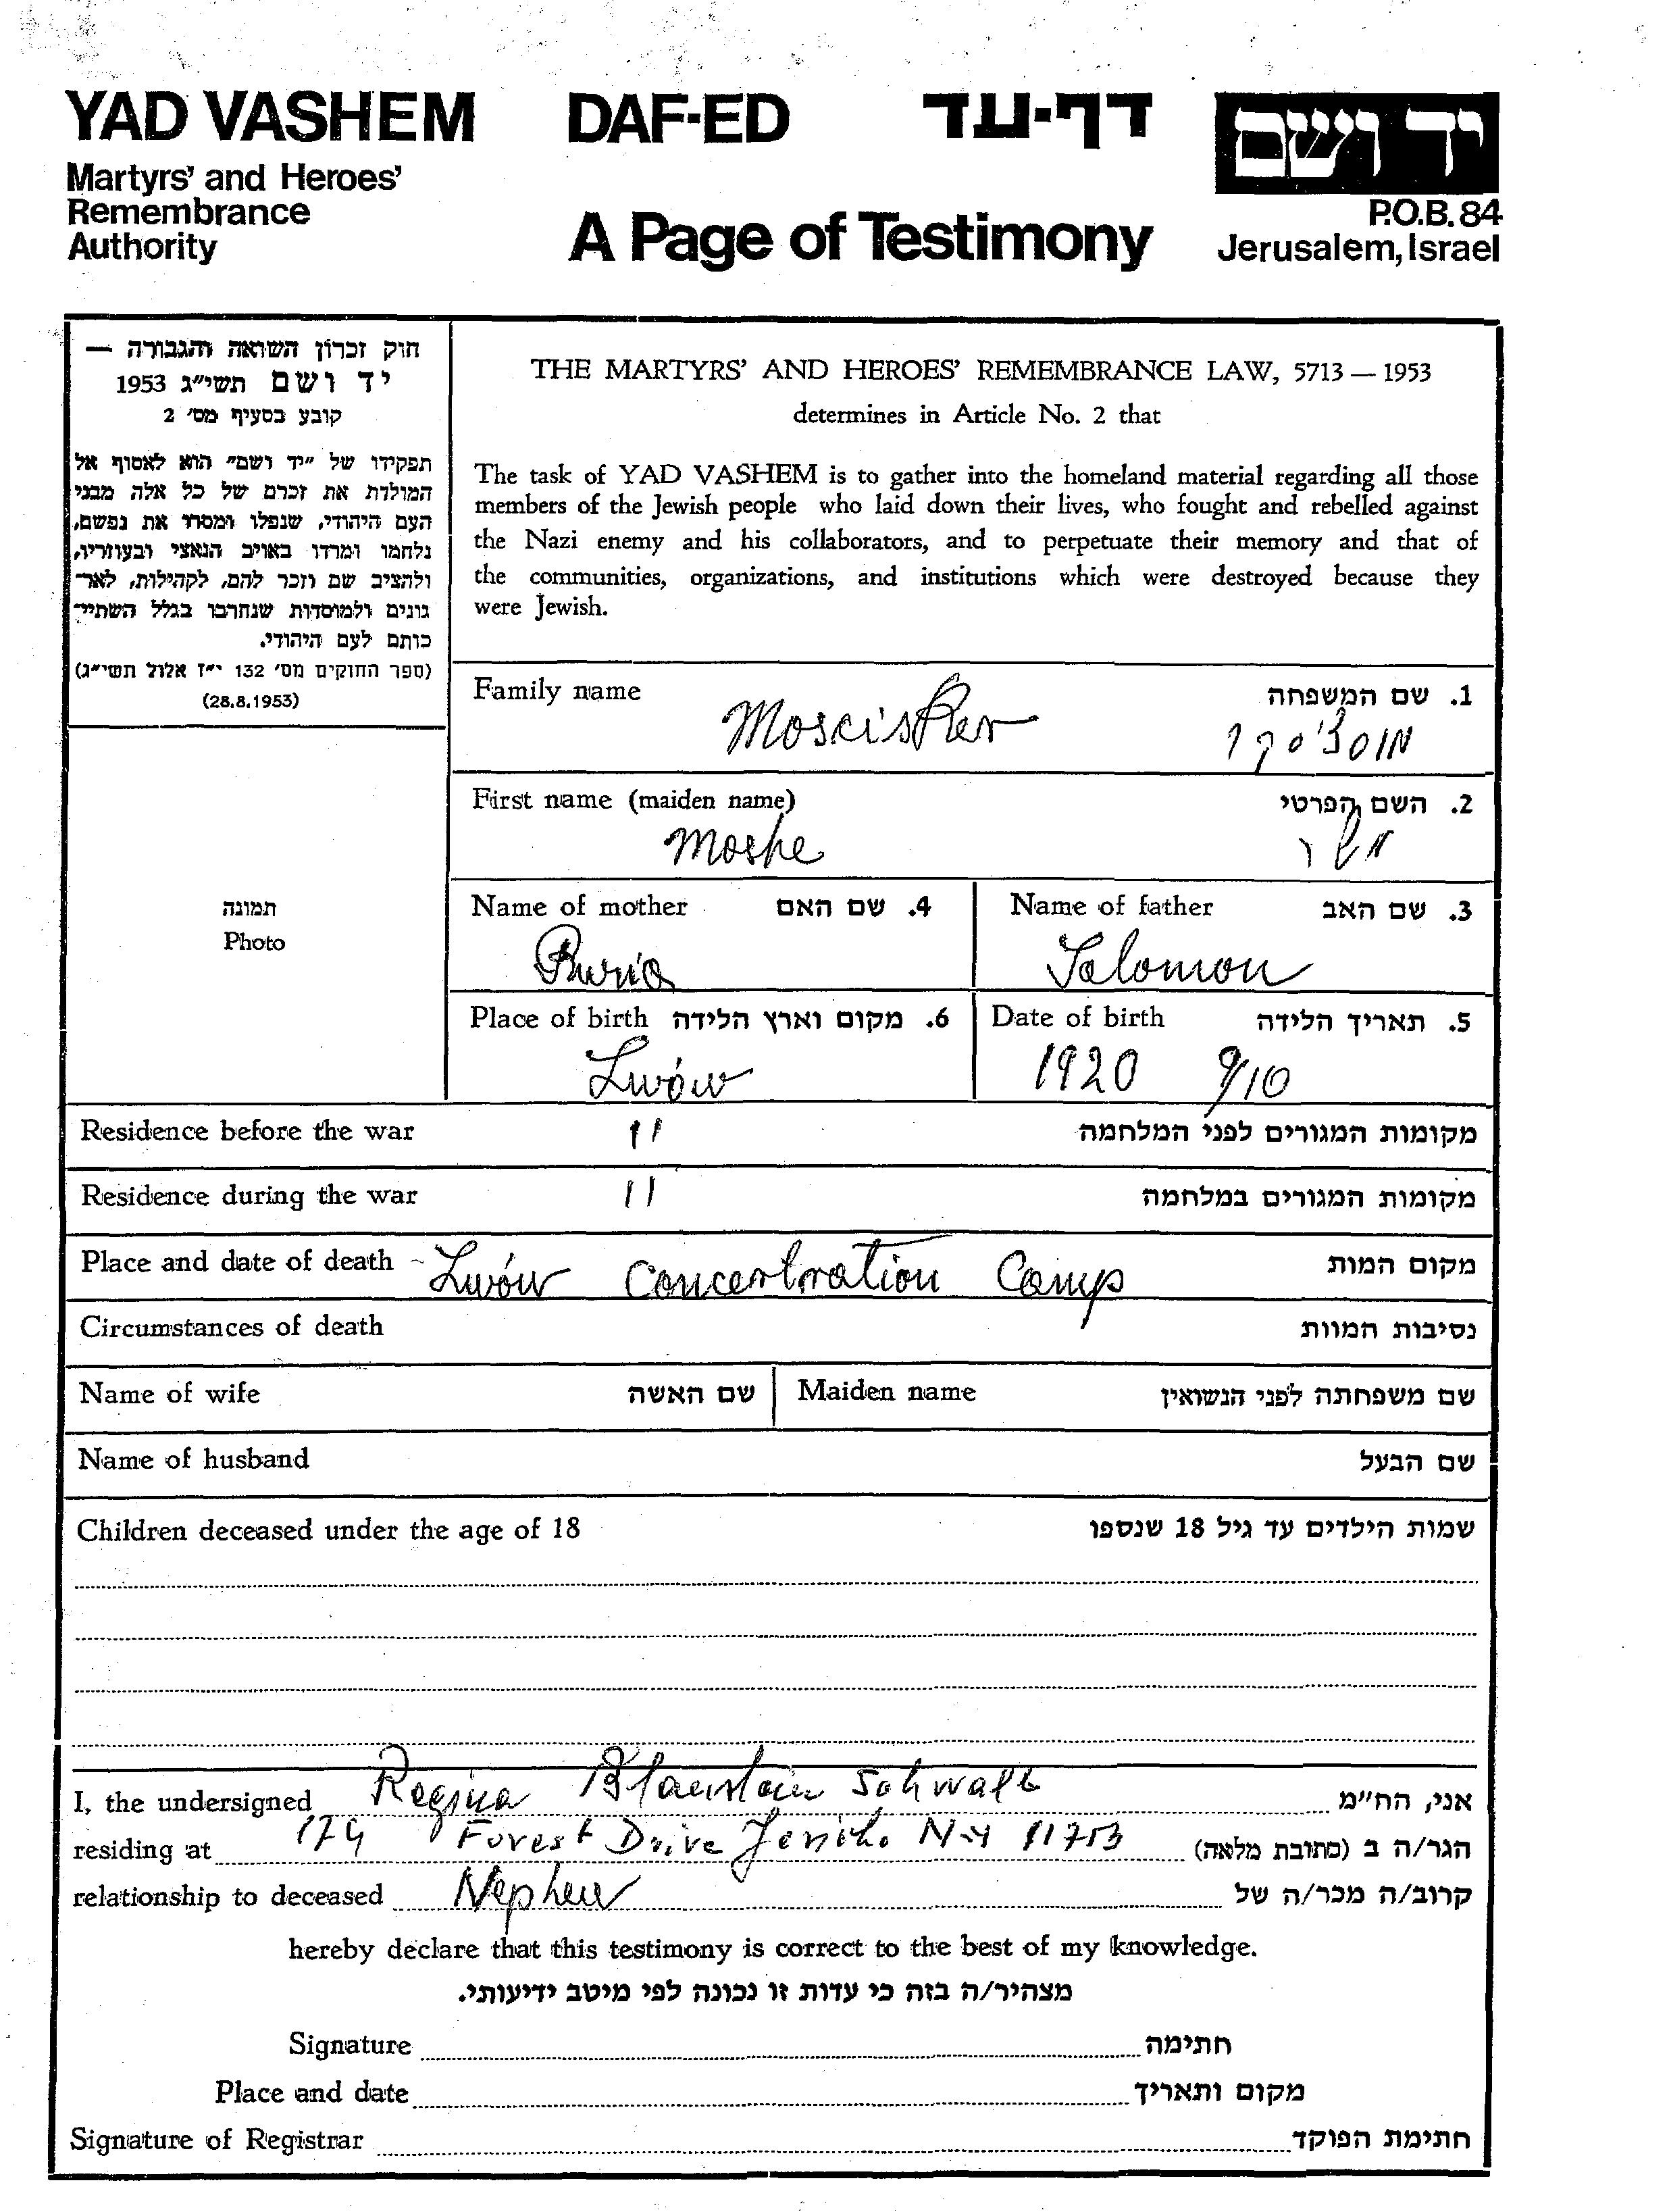 YAD VASHEM DAF-ED דף-עד יד ושם
Martyrs' and Heroes'
Remembrance
Authority
A Page of Testimony
P.O.B. 84
Jerusalem, Israel
חוק זכרון השואה והגבורה —
יד ושם תשי"ג 1953
קובע בסעיף מס' 2
תפקידו של "יד ושם" הוא לאסוף אל
המולדת את זכרם של כל אלה מבני
העם היהודי, שנפלו ומסרו את נפשם,
נלחמו ומרדו באויב הנאצי ובעוזריו,
ולהציב שם וזכר להם, לקהילות, לאר-
גונים ולמוסדות שנחרבו בגלל השתיי-
כותם לעם היהודי.
(ספר החוקים מס' 132 י"ז אלול תשי"ג)
(28.8.1953)
THE MARTYRS' AND HEROES' REMEMBRANCE LAW, 5713 — 1953
determines in Article No. 2 that
The task of YAD VASHEM is to gather into the homeland material regarding all those
members of the Jewish people who laid down their lives, who fought and rebelled against
the Nazi enemy and his collaborators, and to perpetuate their memory and that of
the communities, organizations, and institutions which were destroyed because they
were Jewish.
תמונה
Photo
Family name 1. שם המשפחה
Moscisker מוסציסקר
First name (maiden name) 2. השם הפרטי
Moshe משה
Name of mother 4. שם האם Name of father 3. שם האב
Salomon
Place of birth 6. מקום וארץ הלידה Date of birth 5. תאריך הלידה
Lwów 1920 9/10
Residence before the war 11 מקומות המגורים לפני המלחמה
Residence during the war 11 מקומות המגורים במלחמה
Place and date of death - Lwów Concentration Camp מקום המות
Circumstances of death נסיבות המוות
Name of wife שם האשה Maiden name שם משפחתה לפני הנשואין
Name of husband שם הבעל
Children deceased under the age of 18 שמות הילדים עד גיל 18 שנספו
I, the undersigned Regina Blaustein Schwalb אני, הח"מ
residing at 174 Forest Drive Jericho N-Y 11753 הגר/ה ב (כתובת מלאה)
relationship to deceased Nephew קרוב/ה מכר/ה של
hereby declare that this testimony is correct to the best of my knowledge.
מצהיר/ה בזה כי עדות זו נכונה לפי מיטב ידיעותי.
Signature חתימה
Place and date מקום ותאריך
Signature of Registrar חתימת הפוקד